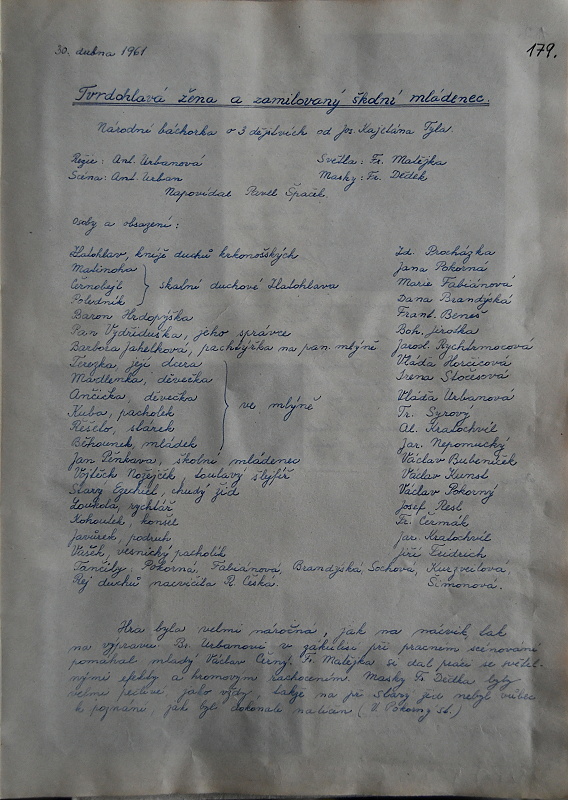 30. dubna 1961
179.
Tvrdohlavá žena a zamilovaný školní mládenec.
Národní báchorka o 3 dějstvích od Jos. Kajetána Tyla.
Režie: Ant. Urbanová Světla: Fr. Matějka
Scéna: Ant. Urban Masky: Fr. Dědek
Napovídal Pavel Špaček.
Osoby a obsazení:
Zlatohlav, kníže duchů krkonošských Zd. Procházka
Malinoha Jana Pokorná
Černobejl skalní duchové Zlatohlava Marie Fabiánová
Poledník Dana Brandýská
Baron Hrdopýška Frant. Beneš
Pan Vydřiduška, jeho správce Boh. Jirotka
Barbora Jahelková, pachtýřka na pan. mlýně Jarosl. Rychtrmocová
Terezka, její dcera Vláďa Horčicová
Madlenka, děvečka Irena Stočesová
Ančička, děvečka Vláďa Urbanová
Kuba, pacholek ve mlýně Fr. Syrový
Řešeto, stárek Al. Kratochvíl
Běhounek, mládek Jar. Nepomucký
Jan Pěnkava, školní mládenec Václav Bubeníček
Vojtěch Nožejček, toulavý šlejfíř Václav Kunst
Starý Ezechiel, chudý žid Václav Pokorný
Loukota, rychtář Josef Resl
Kohoutek, konšel Fr. Čermák
Javůrek, podruh Jar. Kratochvíl
Vašek, vesnický pacholík Jiří
Tančily: Pokorná, Fabiánová, Brandýská, Sochová, Kurzveilová,
Rej duchů nacvičila R. Češká. Šimonová.
Hra byla velmi náročná, jak na nácvik, tak
na výpravu. Br. Urbanovi v zákulisí při pracném scénování
pomáhal mladý Václav Černý. Fr. Matějka si dal práci se světel-
nými efekty a hromovým rachocením. Masky Fr. Dědka byly
velmi pečlivé jako vždy, takže na př. starý žid nebyl vůbec
k poznání, jak byl dokonale nalíčen (V. Pokorný st.)